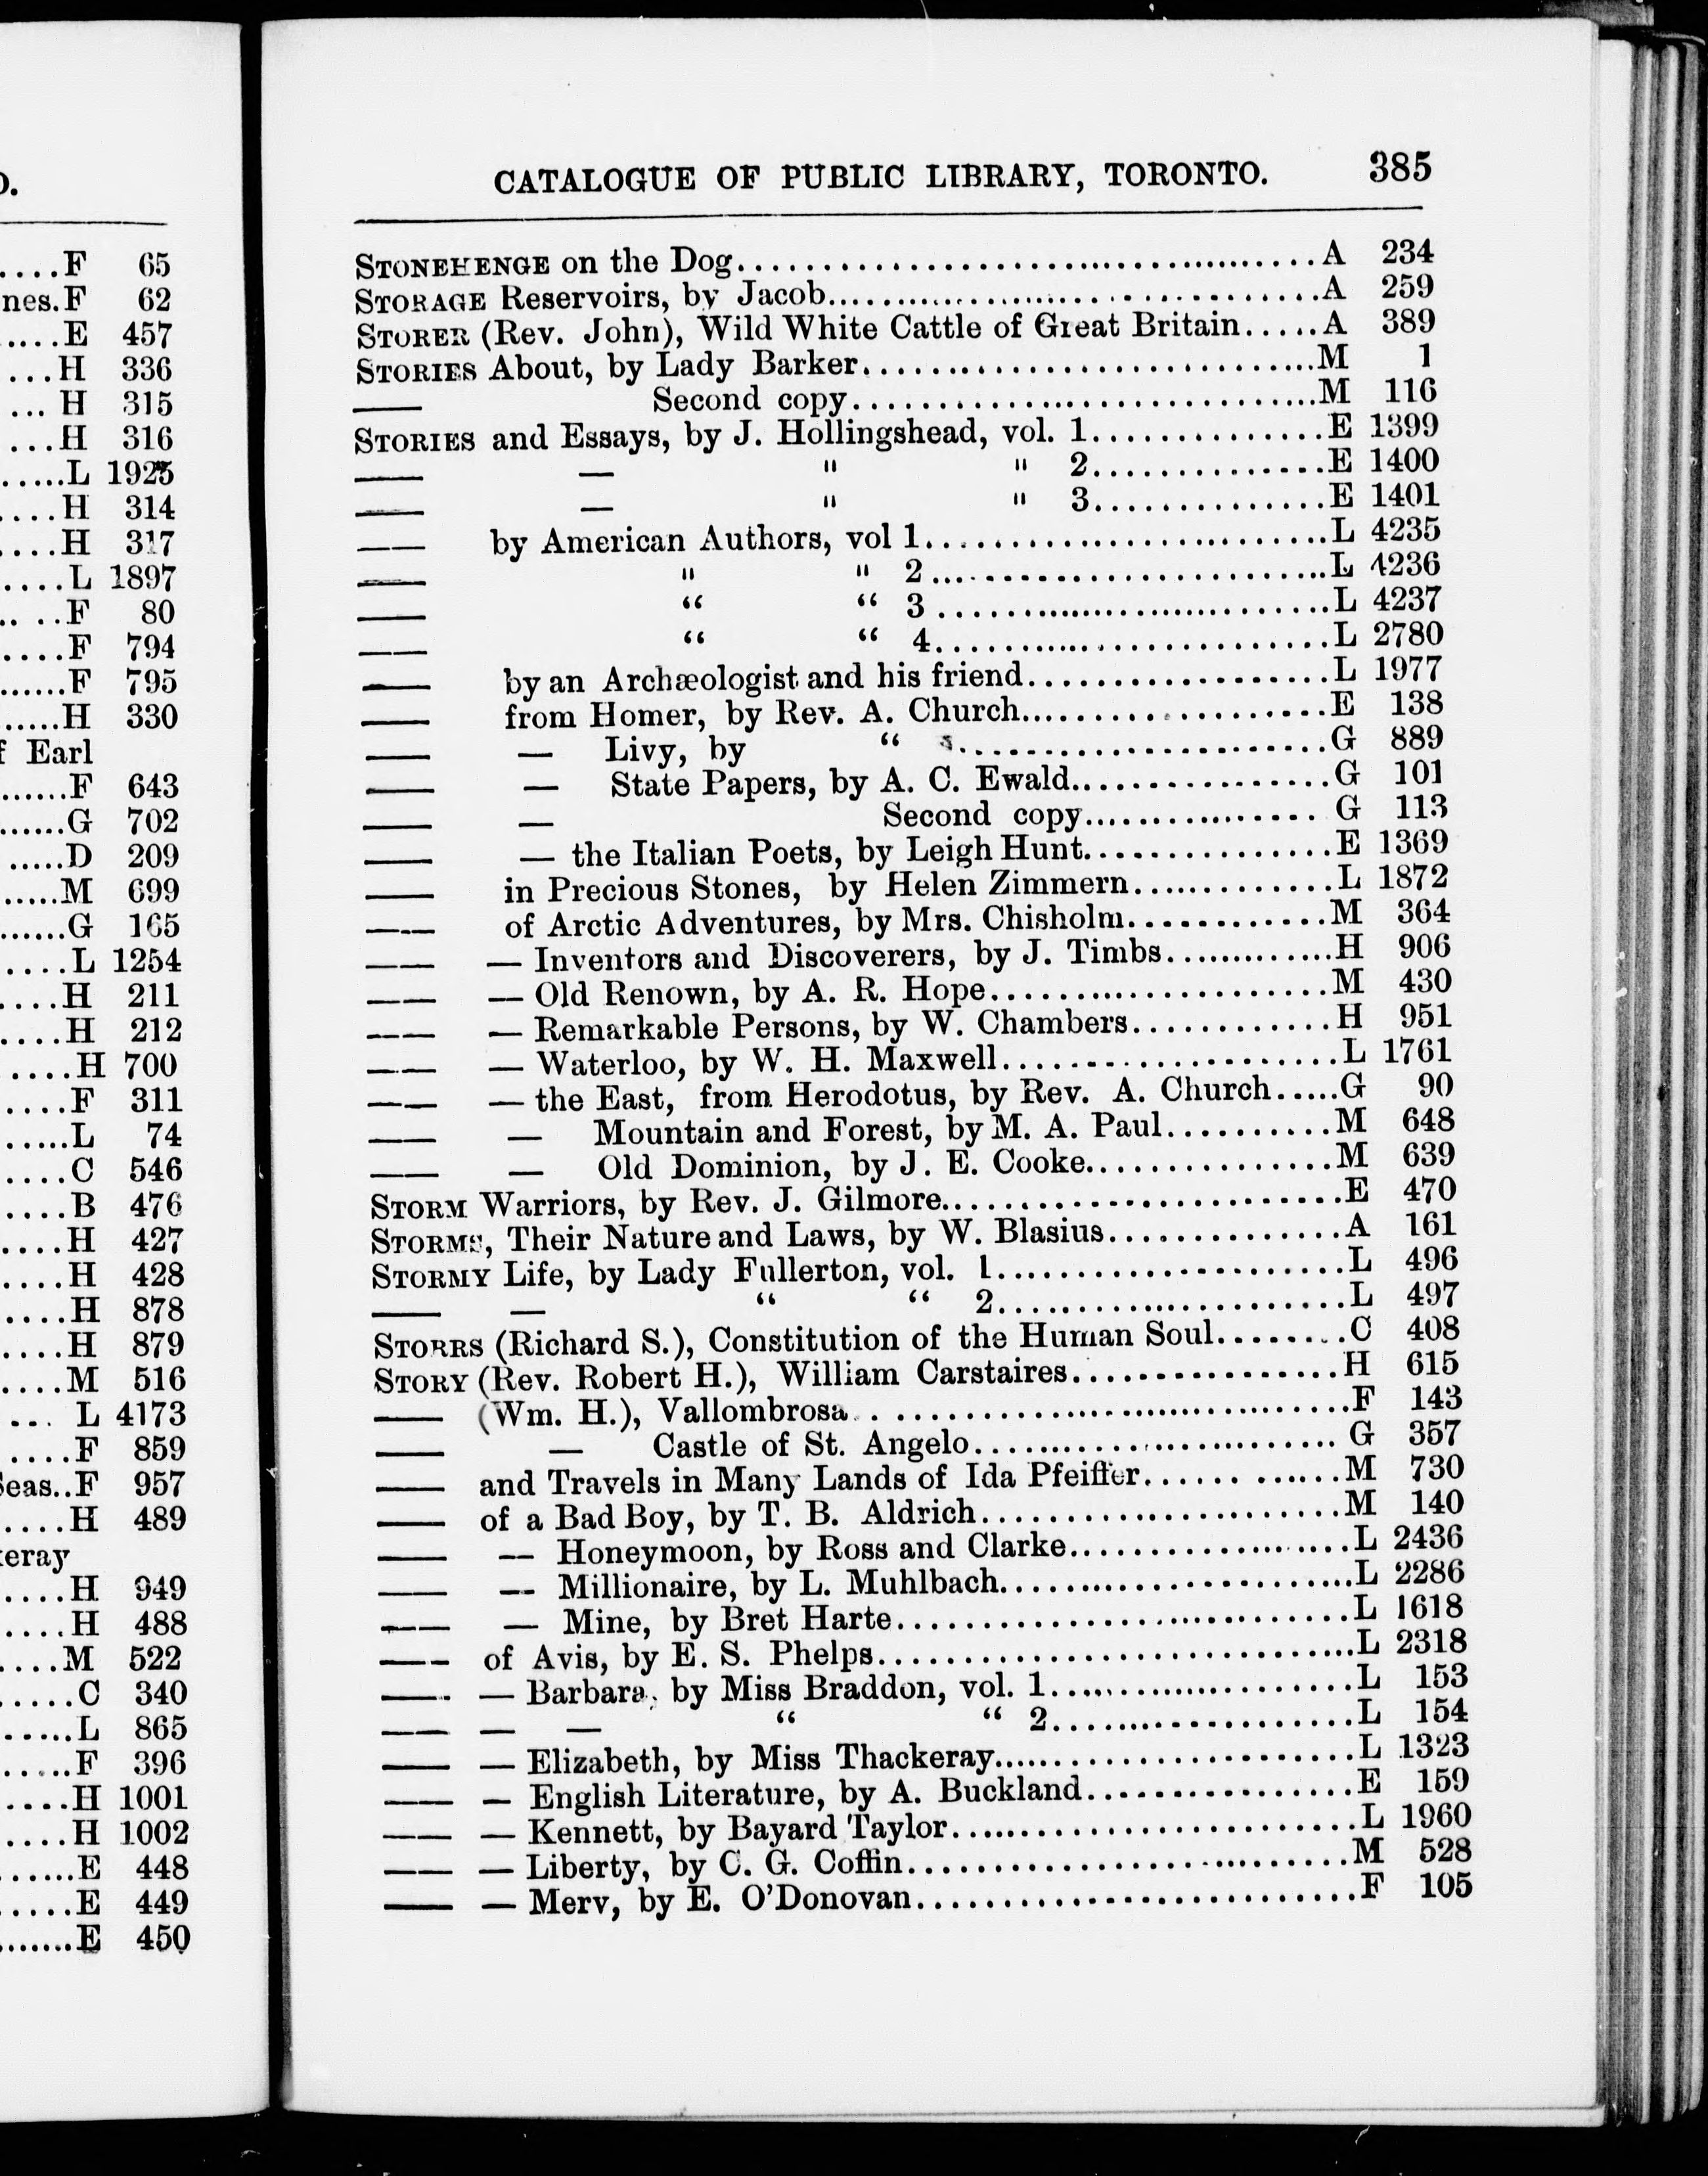 O.
....F 65
nes.F 62
....E 457
...H 336
... H 315
...H 316
.....L 1925
....H 314
....H 317
....L 1897
.. ..F 80
....F 794
......F 795
......H 330
f Earl
......F 643
......G 702
.....D 209
.....M 699
......G 165
....L 1254
....H 211
....H 212
....H 700
....F 311
.....L 74
....C 546
....B 476
....H 427
....H 428
....H 878
....H 879
....M 516
... L 4173
....F 859
Seas..F 957
....H 489
keray
....H 949
....H 488
....M 522
.....C 340
......L 865
.....F 396
....H 1001
....H 1002
......E 448
.....E 449
.......E 450
CATALOGUE OF PUBLIC LIBRARY, TORONTO. 385
STONEHENGE on the Dog....A 234
STORAGE Reservoirs, by Jacob....A 259
STORER (Rev. John), Wild White Cattle of Great Britain.....A 389
STORIES About, by Lady Barker....M 1
—— Second copy....M 116
STORIES and Essays, by J. Hollingshead, vol. 1....E 1399
—— — " " 2....E 1400
—— — " " 3....E 1401
—— by American Authors, vol 1....L 4235
—— " " 2....L 4236
—— “ “ 3....L 4237
—— “ “ 4....L 2780
—— by an Archæologist and his friend....L 1977
—— from Homer, by Rev. A. Church....E 138
—— — Livy, by “ ....G 889
—— — State Papers, by A. C. Ewald....G 101
—— — Second copy.... G 113
—— — the Italian Poets, by Leigh Hunt....E 1369
—— in Precious Stones, by Helen Zimmern....L 1872
—— of Arctic Adventures, by Mrs. Chisholm....M 364
—— — Inventors and Discoverers, by J. Timbs....H 906
—— — Old Renown, by A. R. Hope....M 430
—— — Remarkable Persons, by W. Chambers....H 951
—— — Waterloo, by W. H. Maxwell....L 1761
—— — the East, from Herodotus, by Rev. A. Church.....G 90
—— — Mountain and Forest, by M. A. Paul....M 648
—— — Old Dominion, by J. E. Cooke....M 639
STORM Warriors, by Rev. J. Gilmore....E 470
STORMS, Their Nature and Laws, by W. Blasius....A 161
STORMY Life, by Lady Fullerton, vol. 1....L 496
—— — “ “ 2....L 497
STORRS (Richard S.), Constitution of the Human Soul....C 408
STORY (Rev. Robert H.), William Carstaires....H 615
—— (Wm. H.), Vallombrosa....F 143
—— — Castle of St. Angelo.... G 357
—— and Travels in Many Lands of Ida Pfeiffer....M 730
—— of a Bad Boy, by T. B. Aldrich....M 140
—— — Honeymoon, by Ross and Clarke....L 2436
—— — Millionaire, by L. Muhlbach....L 2286
—— — Mine, by Bret Harte....L 1618
—— of Avis, by E. S. Phelps....L 2318
—— — Barbara, by Miss Braddon, vol. 1....L 153
—— — — “ “ 2....L 154
—— — Elizabeth, by Miss Thackeray....L 1323
—— — English Literature, by A. Buckland....E 159
—— — Kennett, by Bayard Taylor....L 1960
—— — Liberty, by C. G. Coffin....M 528
—— — Merv, by E. O'Donovan....F 105